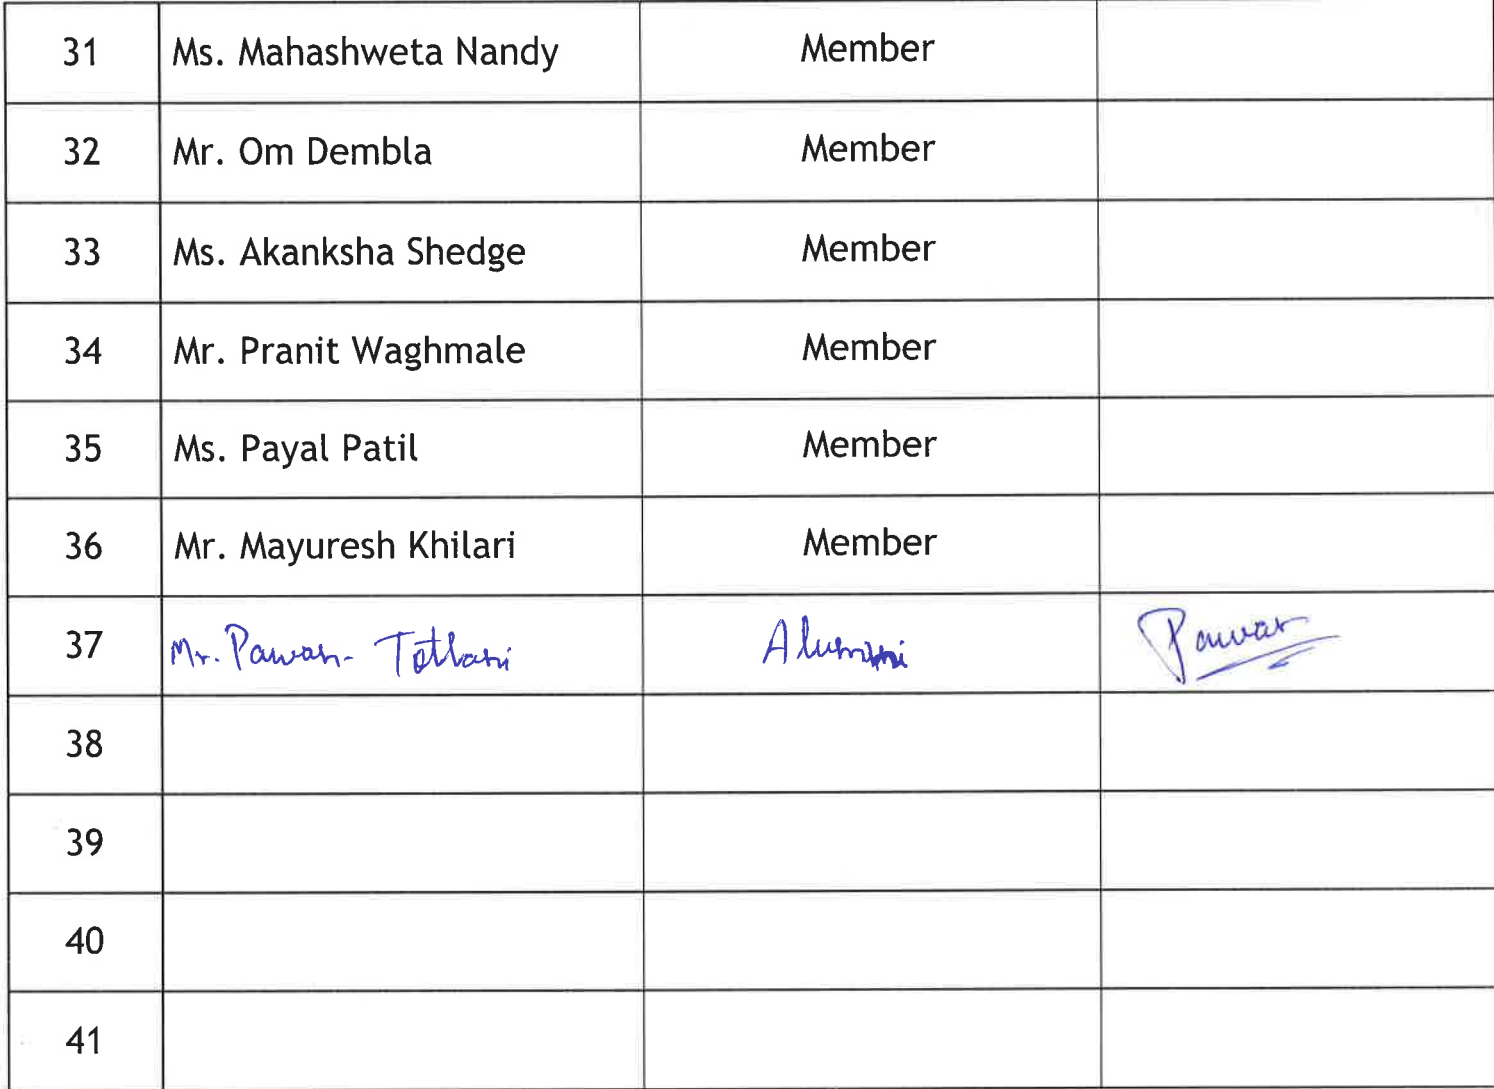 31 Ms. Mahashweta Nandy Member
32 Mr. Om Dembla Member
33 Ms. Akanksha Shedge Member
34 Mr. Pranit Waghmale Member
35 Ms. Payal Patil Member
36 Mr. Mayuresh Khilari Member
37 Mr. Pawan Totlani Alumni Pawan
38
39
40
41